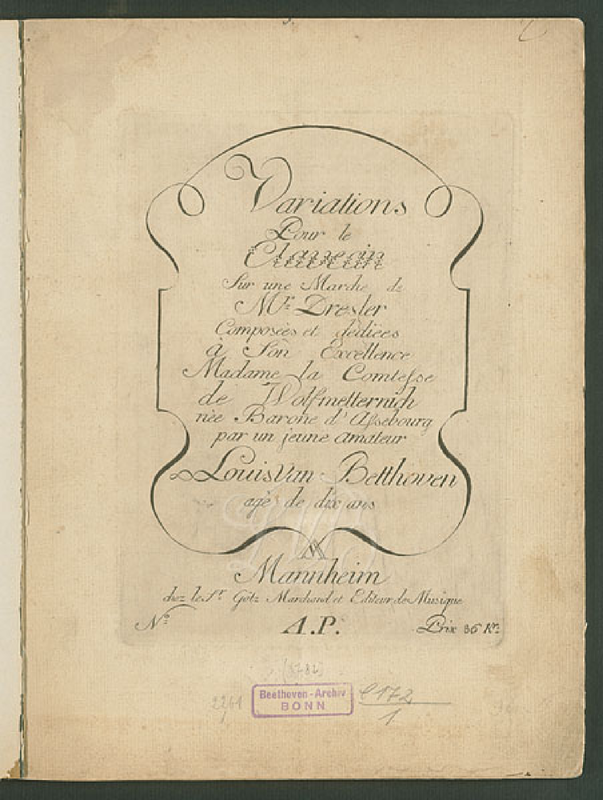 Variations
Pour le
Clavecin
Sur une Marche de
Mr. Dresler
Composées et dediees
à Son Excellence
Madame la Comtesse
de Wolfmetternich
nèe Barone d'Assebourg
par un jeune amateur
Louis van Betthoven
agè de dix ans
Mannheim
chez le Sr. Götz Marchand et Editeur de Musique
No.
A.P.
Prix 36 Kr.
(1782)
2261
Beethoven-Archiv
BONN
C 172
1